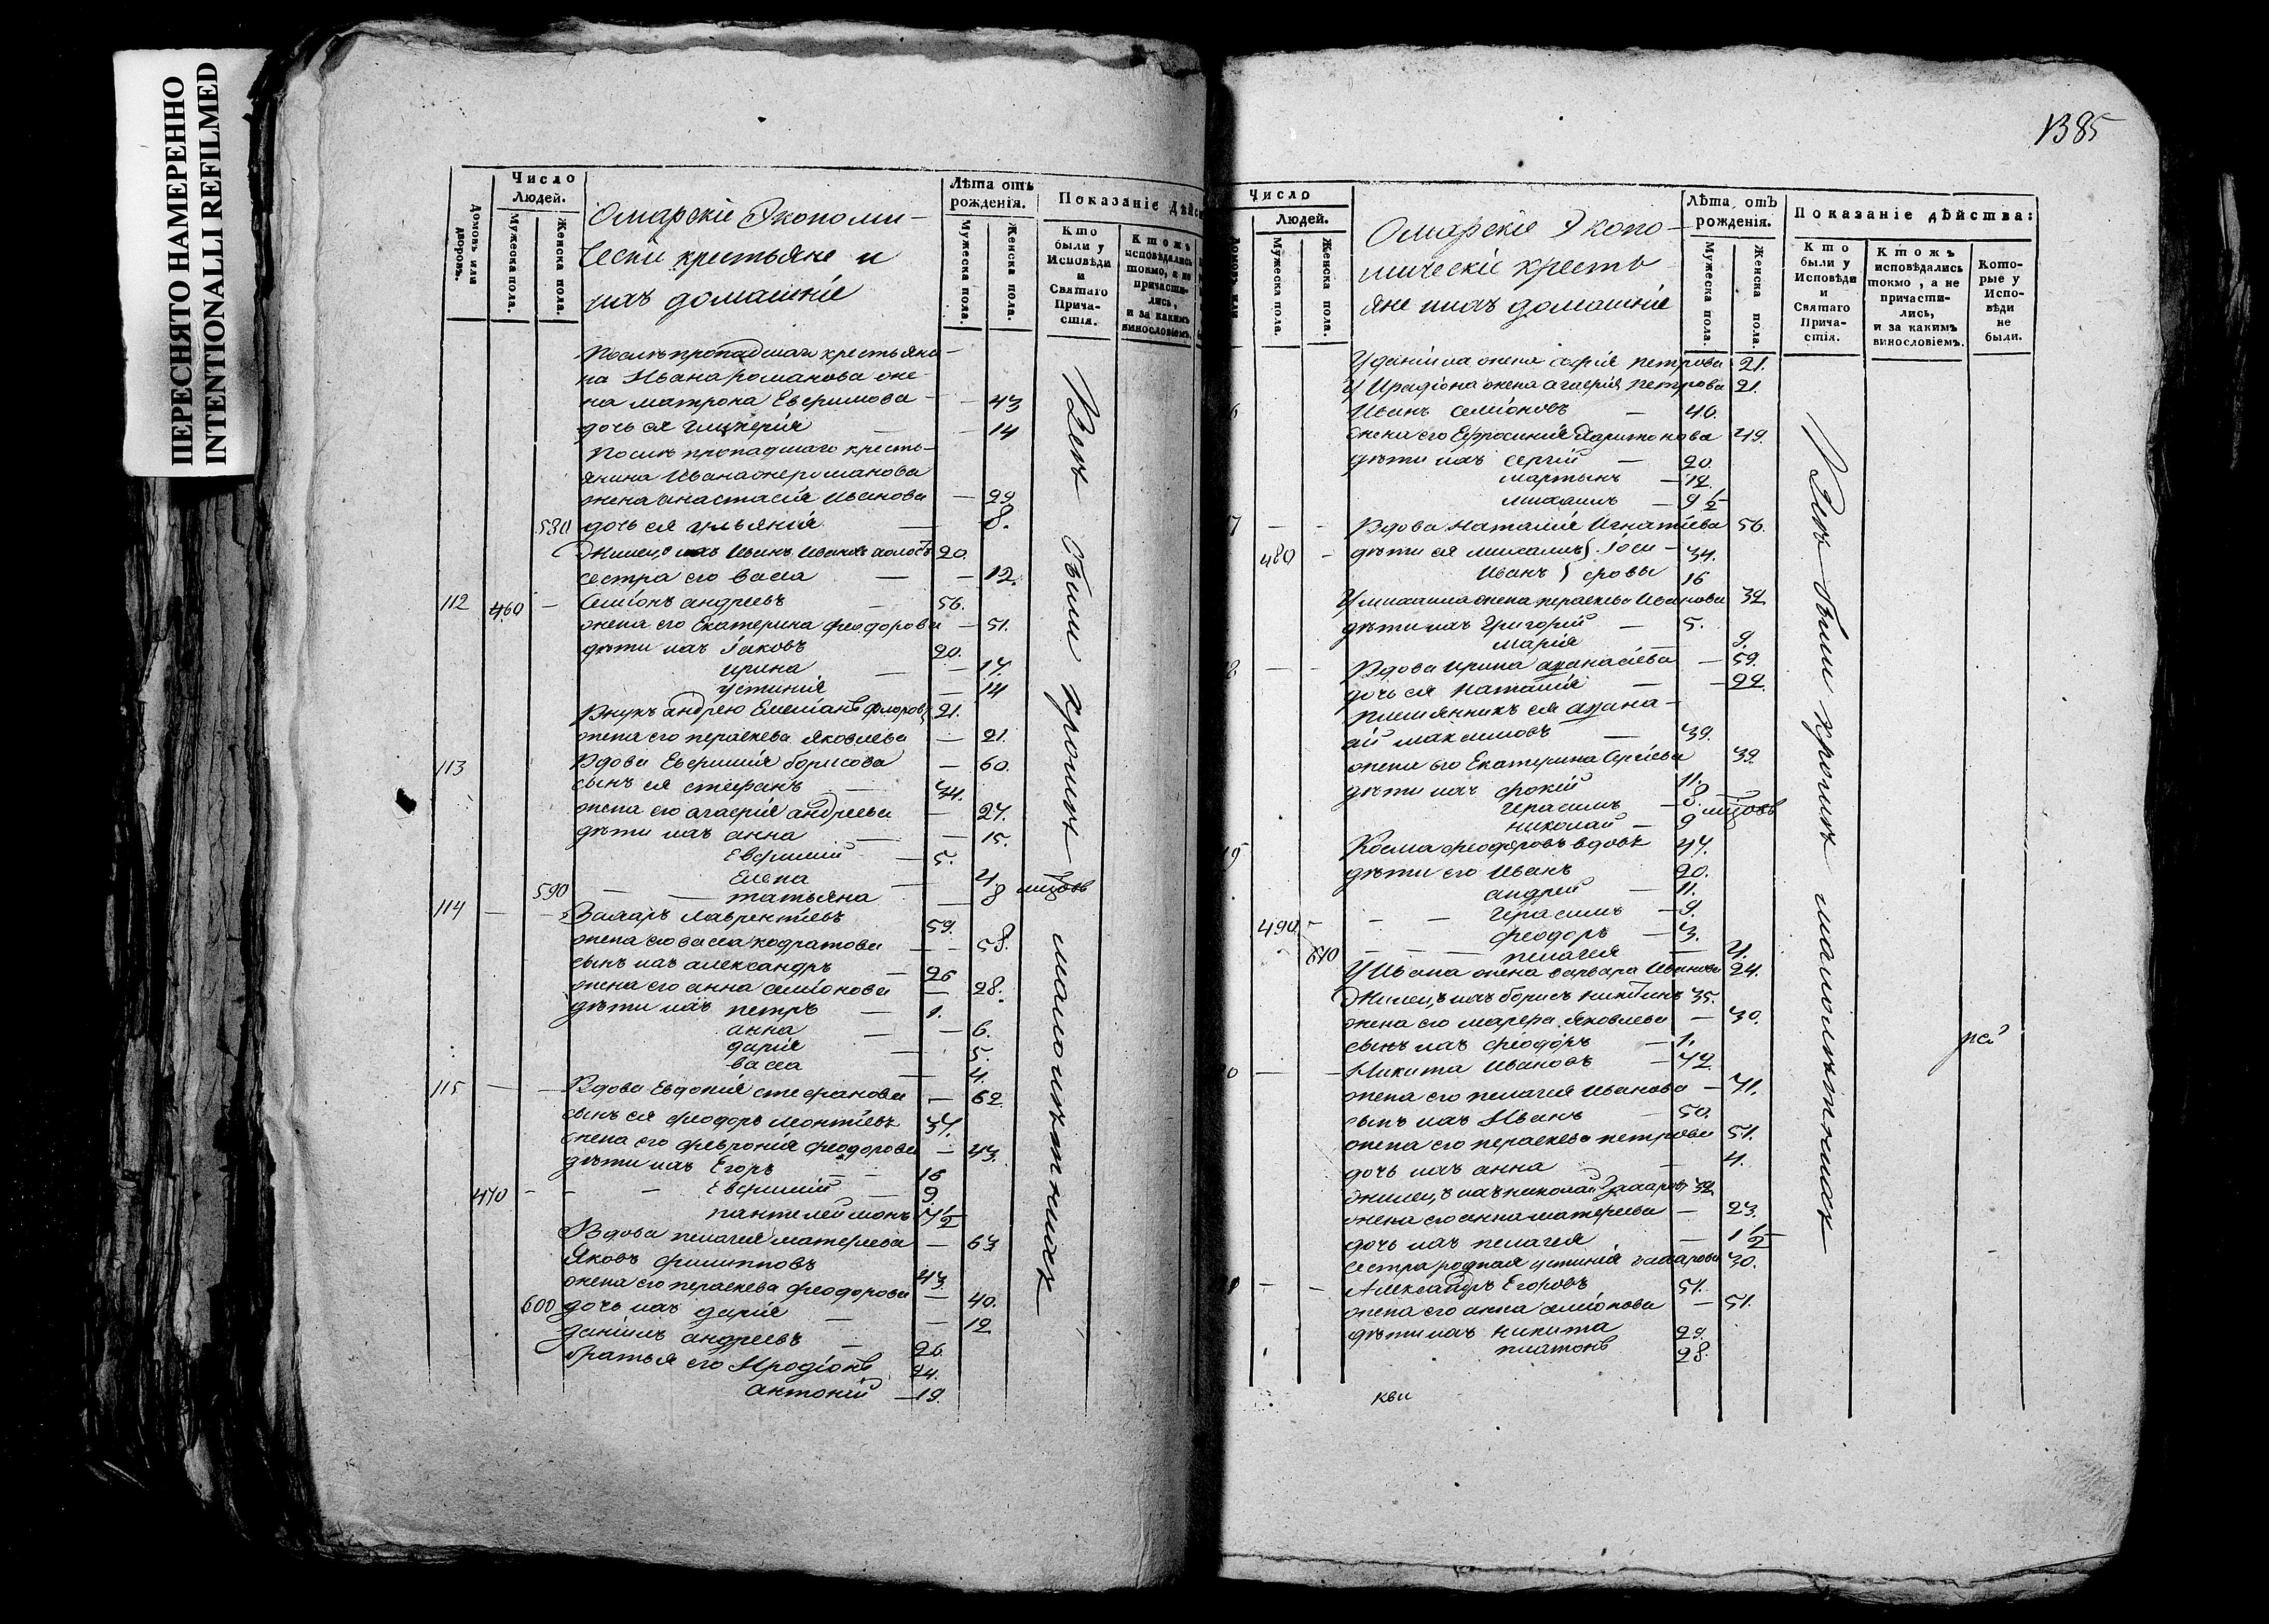 ПЕРЕСНЯТО НАМЕРЕННО
INTENTIONALLI REFILMED
Домовъ или дворовъ.
Число Людей.
Мужеска пола.
Женска пола.
Омарскіе Экономи-
чески крестьяне и
ихъ домашніе
Лѣта отъ рожденія.
Мужеска пола.
Женска пола.
Показаніе дѣйс
Кто были у Исповѣди и Святаго Прича-стія.
Ктожъ исповѣдались токмо, а не причасти-лись, и за какимъ винословіемъ.
Послѣ пропадшаго крестьяни-
на Ивана романова же-
на матрона Евѳимова — 43
дочь ея гликерія — 14
Послѣ пропадшаго кресть-
янина Иванажероманова
жена анастасія Иванова — 29
580 дочь ея ульянія — 8.
Жилецъ ихъ Иванъ Ивановъ 20.
сестра его васса — 12.
112 460 — Семіонъ андреевъ — 56.
жена его Екатерина феодорова — 51.
дѣти ихъ Іаковъ 20.
ирина — 17.
устинія — 14
Внукъ андрею Емеліанъ флоровъ 21.
жена его параскева Яковлева — 21.
113 Вдова Евфимія борисова — 60.
сынъ ея стефанъ — 34.
жена его агафія андреева — 27.
дѣти ихъ анна — 15.
Евфимій — 5.
Елена — 4.
590 — — татьяна — 8 мцовъ
114 — — Захаръ лаврентіевъ 59.
жена его васса кодратова — 58.
сынъ ихъ александръ — 26
жена его анна семіонова — 28.
дѣти ихъ петръ — 1.
анна — 6.
дарія — 5.
васса — 4.
115 — — Вдова Евдокія стефанова — 62.
сынъ ея феодоръ леонтіевъ 37.
жена его февронія феодорова — 43.
дѣти ихъ Егоръ — 16
470 — — — Евфимій — 9.
пантелеймонъ 7½
Вдова пелагея матфеева — 63
Яковъ филипповъ 43.
жена его параскева феодорова — 40.
600 дочь ихъ дарія — 12
даніилъ андреевъ — 26.
братья его Иродіонъ 24.
антоній — 19.
Всѣ были кромѣ малолѣтнихъ
1385
Домовъ или
Число Людей.
Мужеска пола.
Женска пола.
Омарскіе Эконо-
мическіе кресть-
яне ихъ домашніе
Лѣта отъ рожденія.
Мужеска пола.
Женска пола.
Показаніе дѣйства:
Кто были у Исповѣди и Святаго Прича-стія.
Ктожъ исповѣдались токмо, а не причасти-лись, и за какимъ винословіемъ.
Кото-рые у Испо-вѣди не были.
У даніила жена софія петрова 21.
У Ирадіона жена агафія петрова 21.
6 Иванъ семіоновъ — 40.
жена его Ефросинія Харитонова 49.
дѣти ихъ сергій — 20.
мартынъ — 12.
михаилъ — 9½
7 — — Вдова Наталія Игнатіева 56.
480 — дѣти ея михаилъ } Іоси- 34.
Иванъ } фовы 16
У михаила жена параскева Иванова 32
дѣти ихъ Григорій — 5.
марія — 9.
8 — — Вдова ирина афанасіева — 59.
дочь ея Наталія — 22.
племянникъ ея афана-
сій максимовъ — 39.
жена его Екатерина Сергіева 39.
дѣти ихъ фокій 11.
Герасимъ — 8.
николай — 9 мцовъ
19 Косма феодоровъ вдовъ 47.
дѣти его Иванъ 20.
андрей — 11.
Герасимъ — 9.
490 — феодоръ — 3.
610 — — — пелагея — 4.
У Ивана жена варвара Иванова 24.
Жилецъ ихъ борисъ никитинъ 35.
жена его марфа Яковлева — 30.
сынъ ихъ феодоръ — 1.
0 — — Никита Ивановъ — 72.
жена его пелагея Иванова — 71.
сынъ ихъ Иванъ — 50.
жена его параскева петрова 51.
дочь ихъ анна — 4.
жилецъ ихъ николай Захаровъ 32
жена его анна матфеева — 23.
дочь ихъ пелагея — 1½
сестра родная устинія захарова 30.
— — Александръ Егоровъ 51.
жена его анна семіонова — 51.
дѣти ихъ никита 29.
платонъ 28.
Всѣ были кромѣ малолѣтнихъ